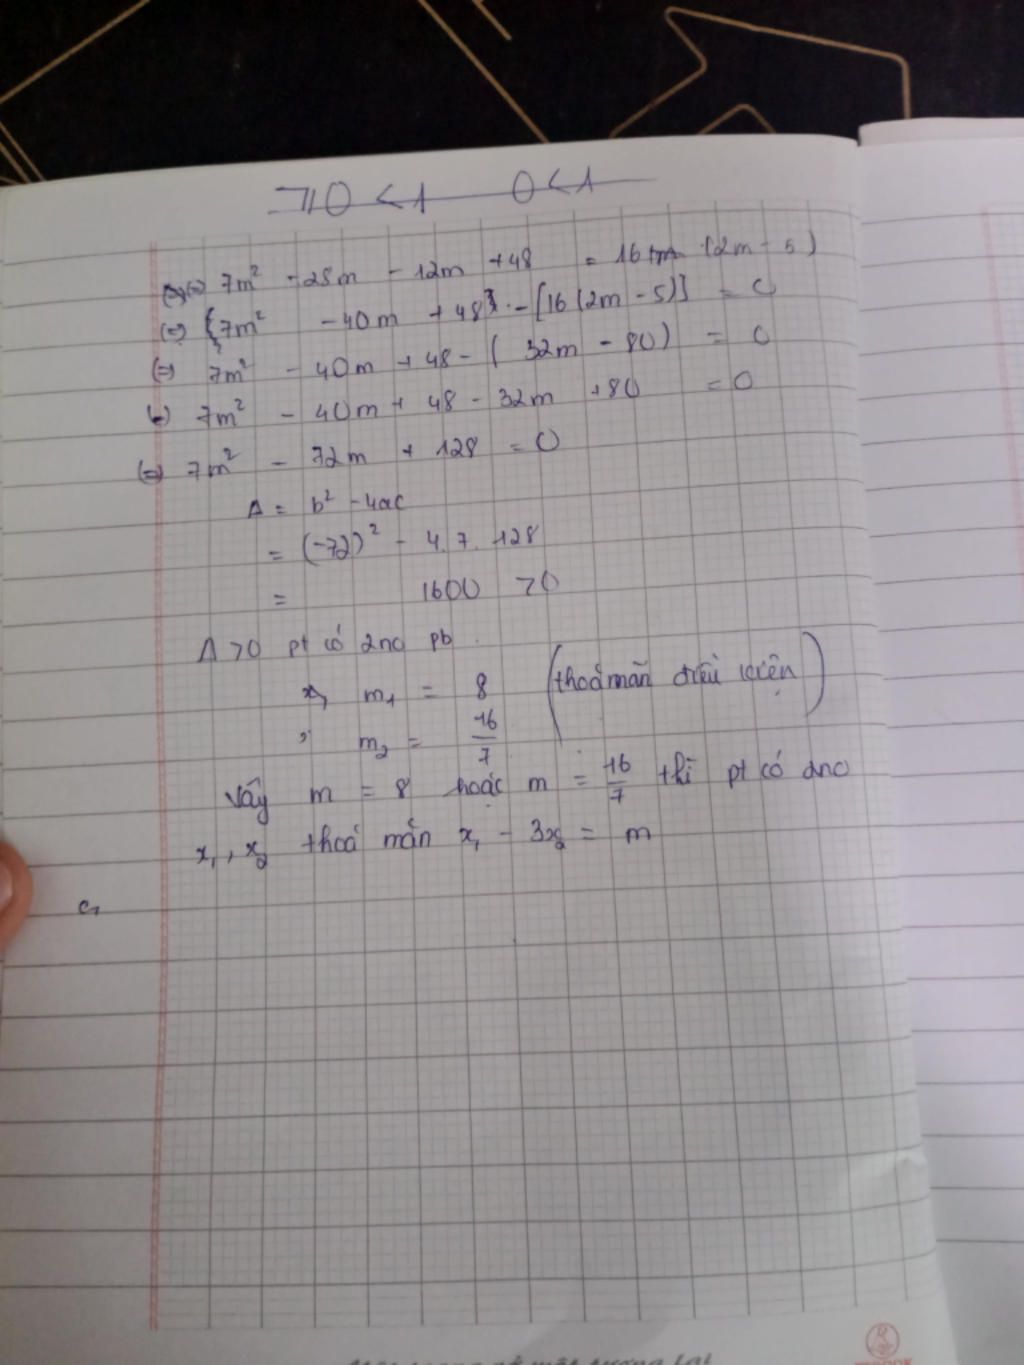 7m² - 28m - 12m + 48 = 16 (2m - 5)
(=) {7m² - 40m + 48} - [16(2m - 5)] = 0
(=) 7m² - 40m + 48 - ( 32m - 80) = 0
(=) 7m² - 40m + 48 - 32m + 80 = 0
(=) 7m² - 72m + 128 = 0
Δ = b² - 4ac
= (-72)² - 4. 7. 128
= 1600 >0
Δ >0 pt có 2no pb.
m₁ = 8 (thoả mãn điều kiện)
m₂ = 16/7
Vậy m = 8 hoặc m = 16/7 thì pt có 2no
x₁, x₂ thoả mãn x₁ - 3x₂ = m
c,